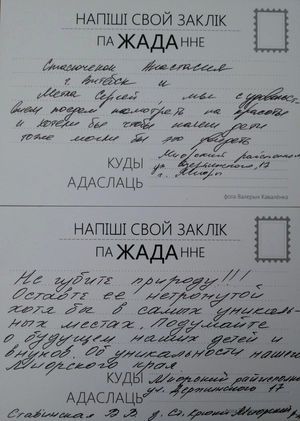 НАПІШІ СВОЙ ЗАКЛІК
ПА ЖАДА ННЕ
Стасюченок Анастасия
г. Витебск и
Сергей, мы с удовольст.
поедем посмотреть на красоте
и хотели бы чтобы наши дети
тоже могли бы это увидеть
КУДЫ
Миорский райисполком
ул. Дзержинского, 17
г. Миоры
АДАСЛАЦЬ
фота Валерыя Каваленка
НАПІШІ СВОЙ ЗАКЛІК
ПА ЖАДА ННЕ
Не губите природу!!!
Оставте ее нетронутой
хотя бы в самых уникаль-
ных местах. Подумайте
о будущем наших детей и
внуков. Об уникальности нашего
Миорского края
КУДЫ
Миорский райисполком
ул. Дзержинского 17
АДАСЛАЦЬ
Ставинская В.В. д.